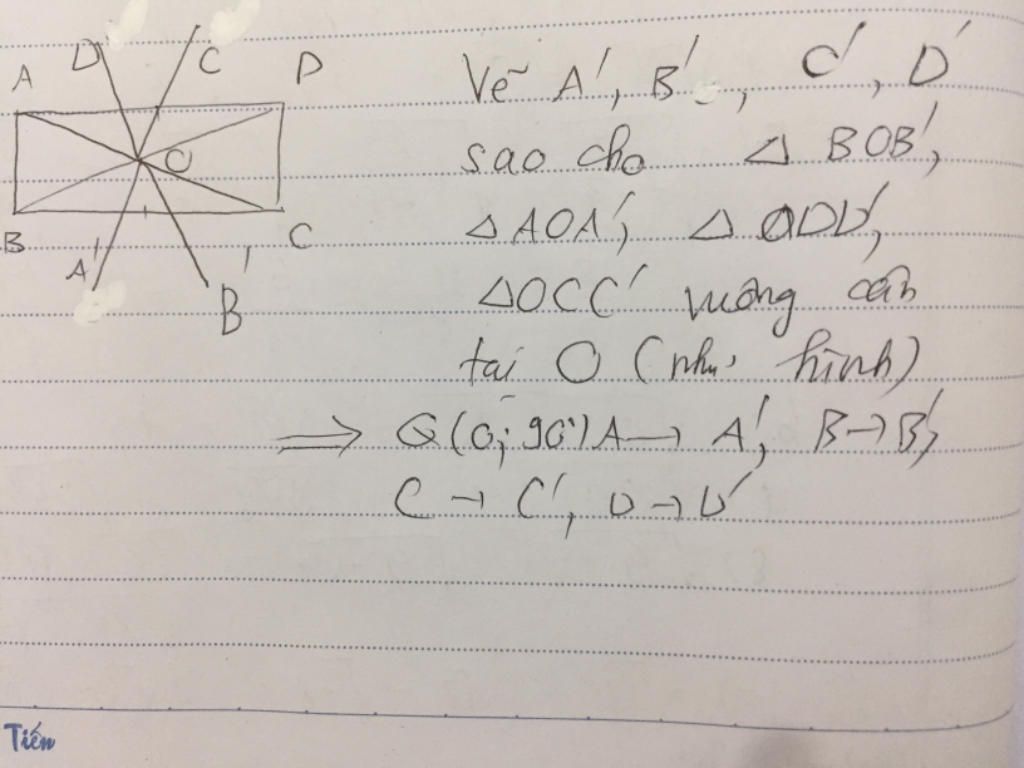 A D C D
O
B A' B' C
Vẽ A', B', C', D'
sao cho △ BOB',
△AOA', △ ODD',
△OCC' vuông cân
tại O (như hình)
⟹ Q(O; 90°) A → A', B → B',
C → C', D → D'
Tiến